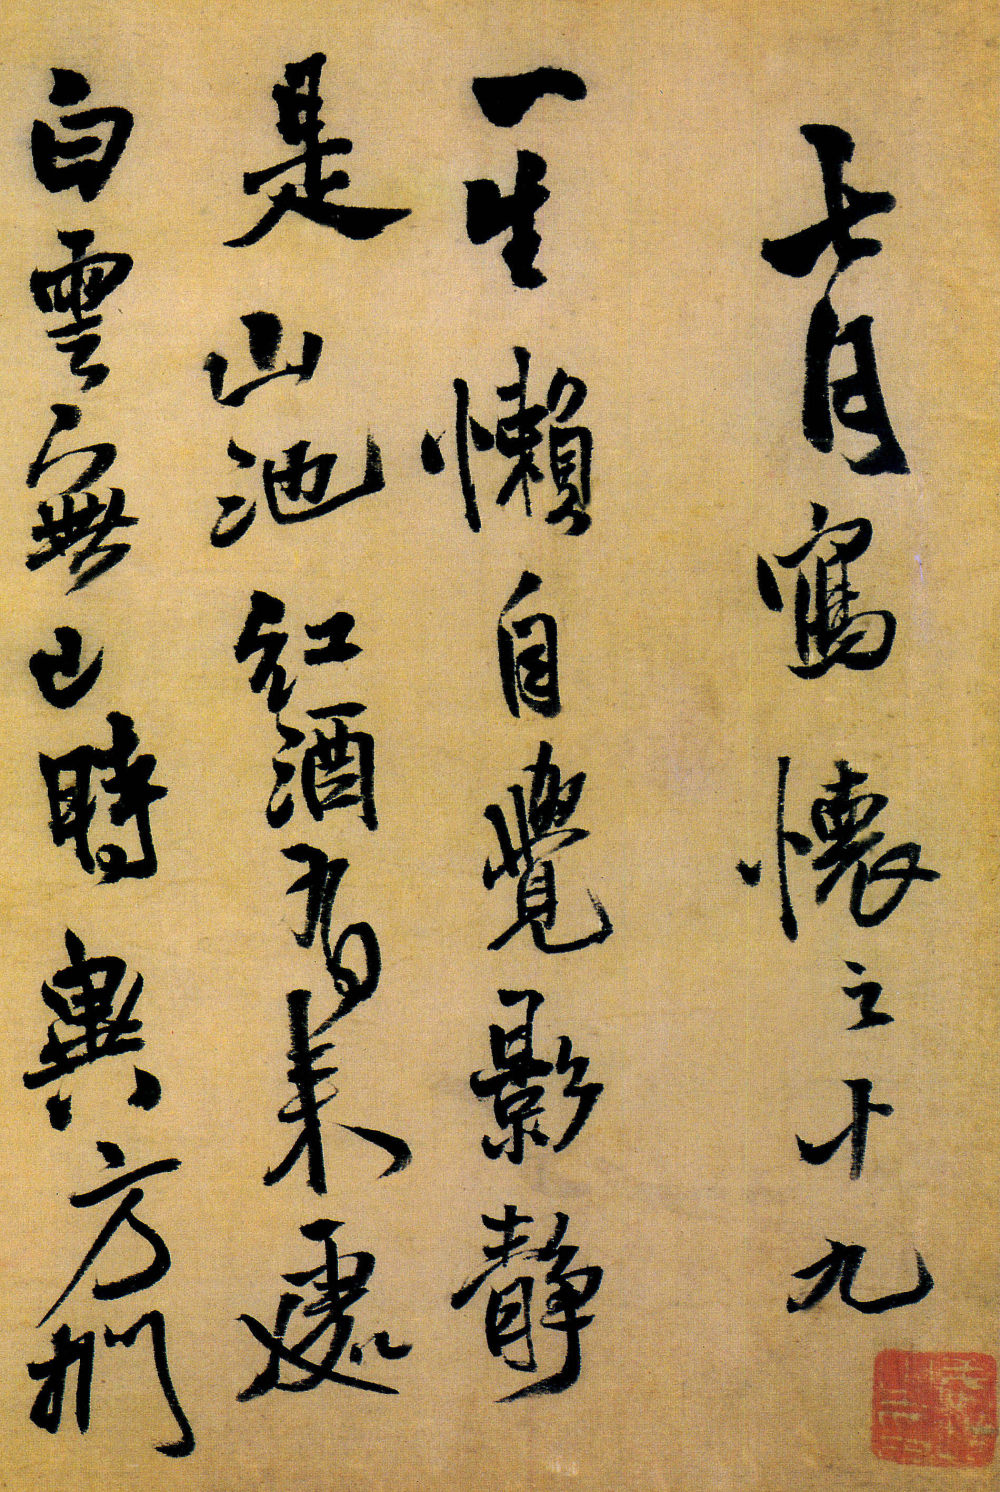 七月寫懷之十九
一生懶自覺影靜
是山池紅酒有来處
白雲無已時興方捫